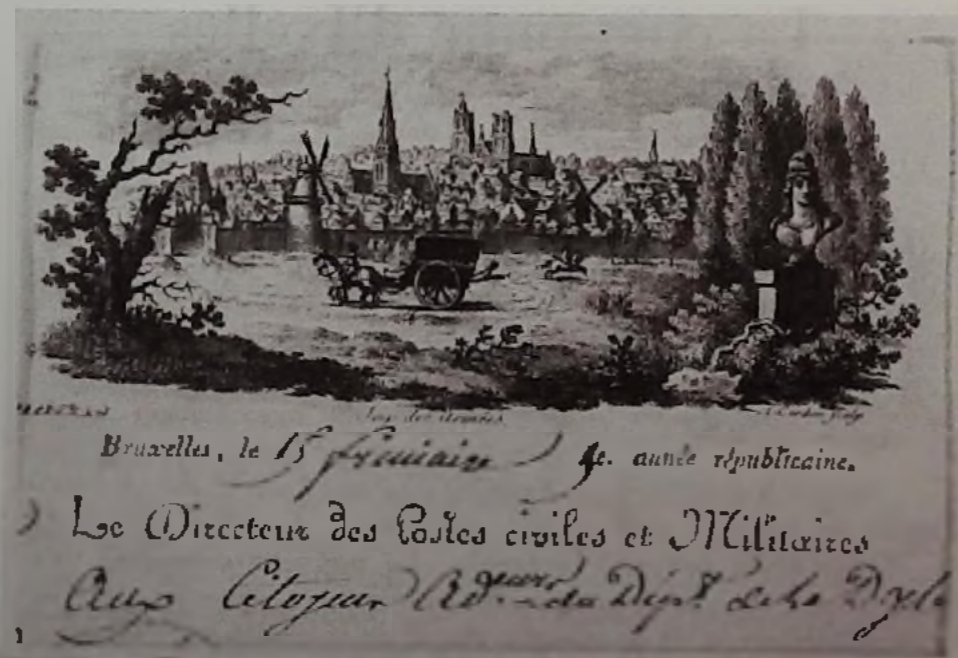 Bruxelles, le 15 frimaire année républicaine.
Le Directeur des Postes civiles et Militaires
Aux Citoyens du Dépt. de la Dyle